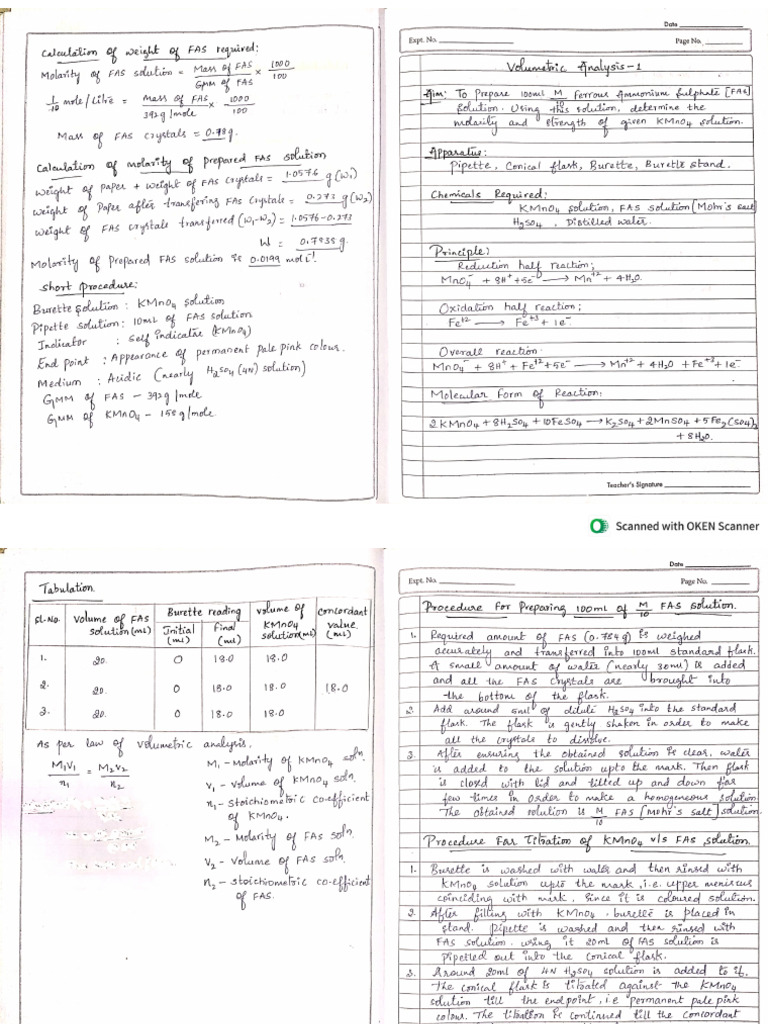 Calculation of weight of FAS required:
Molarity of FAS solution = Mass of FAS / GMM of FAS × 1000 / 100
1/10 mole/Litre = Mass of FAS / 392g/mole × 1000 / 100
Mass of FAS crystals = 0.78g.
Calculation of molarity of prepared FAS solution
Weight of paper + weight of FAS crystals = 1.0576 g (W1)
Weight of paper after transfering FAS crystals = 0.273 g (W2)
Weight of FAS crystals transferred (W1-W2) = 1.0576-0.273
W = 0.7935g.
Molarity of Prepared FAS solution is 0.0199 mol L-1.
Short procedure:
Burette solution : KMnO4 solution
Pipette solution : 10ml of FAS solution
Indicator : Self indicator (KMnO4)
End point : Appearance of permanent pale pink colour.
Medium : Acidic (nearly H2SO4 (4N) solution)
GMM of FAS - 392g/mole
GMM of KMnO4 - 158g/mole
Date
Expt. No.
Page No.
Volumetric Analysis-1
Aim: To Prepare 100ml M/10 Ferrous Ammonium Sulphate [FAS]
solution. Using this solution, determine the
molarity and strength of given KMnO4 solution.
Apparatus:
Pipette, Conical flask, Burette, Burette stand.
Chemicals Required:
KMnO4 solution, FAS solution [Mohr's salt]
H2SO4, Distilled water.
Principle:
Reduction half reaction;
MnO4- + 8H+ + 5e- → Mn+2 + 4H2O.
Oxidation half reaction;
Fe+2 → Fe+3 + 1e-.
Overall reaction.
MnO4- + 8H+ + Fe+2 + 5e- → Mn+2 + 4H2O + Fe+3 + 1e-
Molecular Form of Reaction:
2KMnO4 + 8H2SO4 + 10FeSO4 → K2SO4 + 2MnSO4 + 5Fe2(SO4)3
+ 8H2O.
Teacher's Signature
Scanned with OKEN Scanner
Tabulation
Sl.No. Volume of FAS solution (mL) Burette reading Initial (mL) Final (mL) Volume of KMnO4 solution (mL) Concordant value (mL)
1. 20. 0 18.0 18.0
2. 20. 0 18.0 18.0 18.0
3. 20. 0 18.0 18.0
As per law of volumetric analysis.
M1V1 / n1 = M2V2 / n2
M1 - Molarity of KMnO4 soln
V1 - Volume of KMnO4 soln.
n1 - Stoichiometric co-efficient
of KMnO4.
M2 - Molarity of FAS soln.
V2 - Volume of FAS soln.
n2 - Stoichiometric co-efficient
of FAS.
Date
Expt. No.
Page No.
Procedure For Preparing 100ml of M/10 FAS solution.
1. Required amount of FAS (0.784g) is weighed
accurately and transferred into 100ml standard flask.
A small amount of water (nearly 30ml) is added
and all the FAS crystals are brought into
the bottom of the flask.
2. Add around 5ml of dilute H2SO4 into the standard
flask. The flask is gently shaken in order to make
all the crystals to dissolve.
3. After ensuring the obtained solution is clear, water
is added to the solution upto the mark. Then flask
is closed with lid and tilted up and down for
few times in order to make a homogeneous solution.
The obtained solution is M/10 FAS [Mohr's salt] solution.
Procedure For Titration of KMnO4 v/s FAS solution.
1. Burette is washed with water and then rinsed with
KMnO4 solution upto the mark, i.e. upper meniscus
coinciding with mark, since it is coloured solution.
2. After filling with KMnO4, burette is placed in
stand. Pipette is washed and then rinsed with
FAS solution. using it 20ml of FAS solution is
pipetted out into the conical flask.
3. Around 20ml of 4N H2SO4 solution is added to it.
The conical flask is titrated against the KMnO4
solution till the endpoint, i.e permanent pale pink
colour. The titration is continued till the concordant